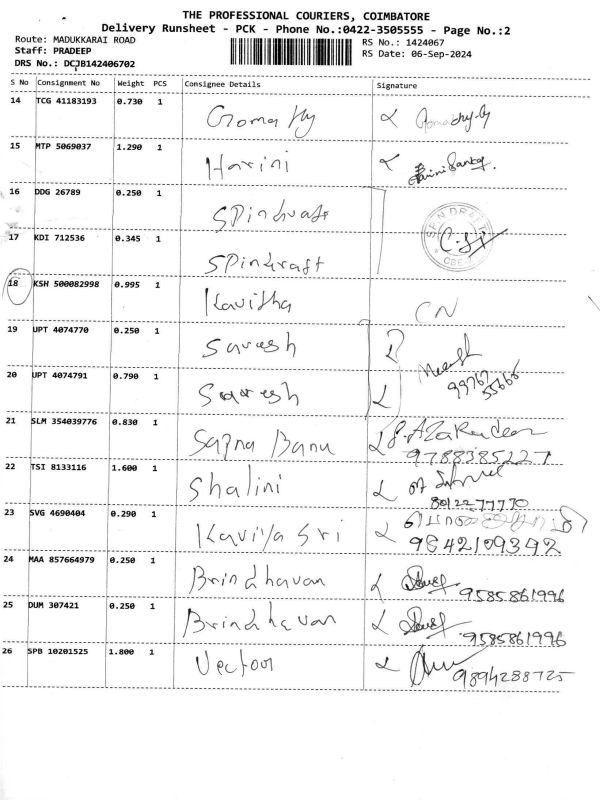 THE PROFESSIONAL COURIERS, COIMBATORE
Delivery Runsheet - PCK - Phone No.:0422-3505555 - Page No.:2
Route: MADUKKARAI ROAD RS No.: 1424067
Staff: PRADEEP RS Date: 06-Sep-2024
DRS No.: DCJB142406702
S No Consignment No Weight PCS Consignee Details Signature
14 TCG 41183193 0.730 1 Gomathy
15 MTP 5069037 1.290 1 Harini
16 DDG 26789 0.250 1 SPincraft
17 KDI 712536 0.345 1 SPincraft
18 KSH 500082998 0.995 1 Kavitha CN
19 UPT 4074770 0.250 1 Saresh
20 UPT 4074791 0.790 1 Saresh 99767 55666
21 SLM 354039776 0.830 1 Sapna Banu 9788385227
22 TSI 8133116 1.600 1 Shalini 8012277770
23 SVG 4690404 0.290 1 Kaviya Sri 9842109392
24 MAA 857664979 0.250 1 Brindhavan 9585861996
25 DUM 307421 0.250 1 Brindhavan 9585861996
26 SPB 10201525 1.800 1 Vector 9894288725